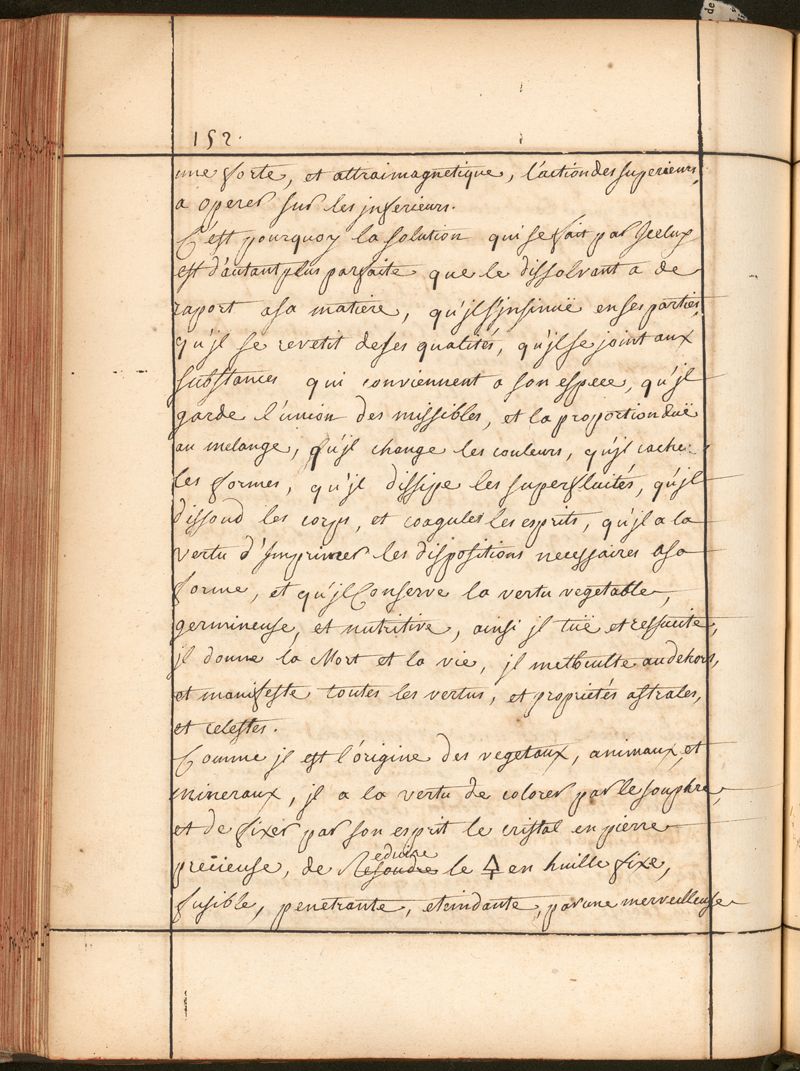 152.
une forte, et attraimagnetique, l'action des superieurs,
a operer sur les jnferieurs.
C'est pourquoy la solution qui se fait par Jceluy
est d'autant plus parfaite que le dissolvant a de
raport a sa matiere, qu'jl s'jnsinuë en ses parties,
qu'jl se revetit de ses qualités, qu'jl se joint aux
substances qui conviennent a son espece, qu'jl
garde l'union des missibles, et la proportion duë
au melange, qu'jl change les couleurs, qu'jl cache
les formes, qu'jl dissipe les superfluités, qu'jl
dissoud les corps, et coagule les esprits, qu'jl a la
vertu d'Jmprimer les dispositions necessaires a sa
forme, et qu'jl Conserve la vertu vegetable,
germineuse, et nutritive, ainsi jl tuë et ressucite,
jl donne la Mort et la vie, jl met au dehors,
et manifeste toutes les vertus, et proprietés astrales,
et celestes.
Comme jl est l'origine des vegetaux, animaux, et
mineraux, jl a la vertu de colorer par le souphre,
et de fixer par son esprit le cristal en pierre
preçieuse, de Reduire le 🜍 en huille fixe,
fusible, penetrante, et eindante, par une merveilleuse